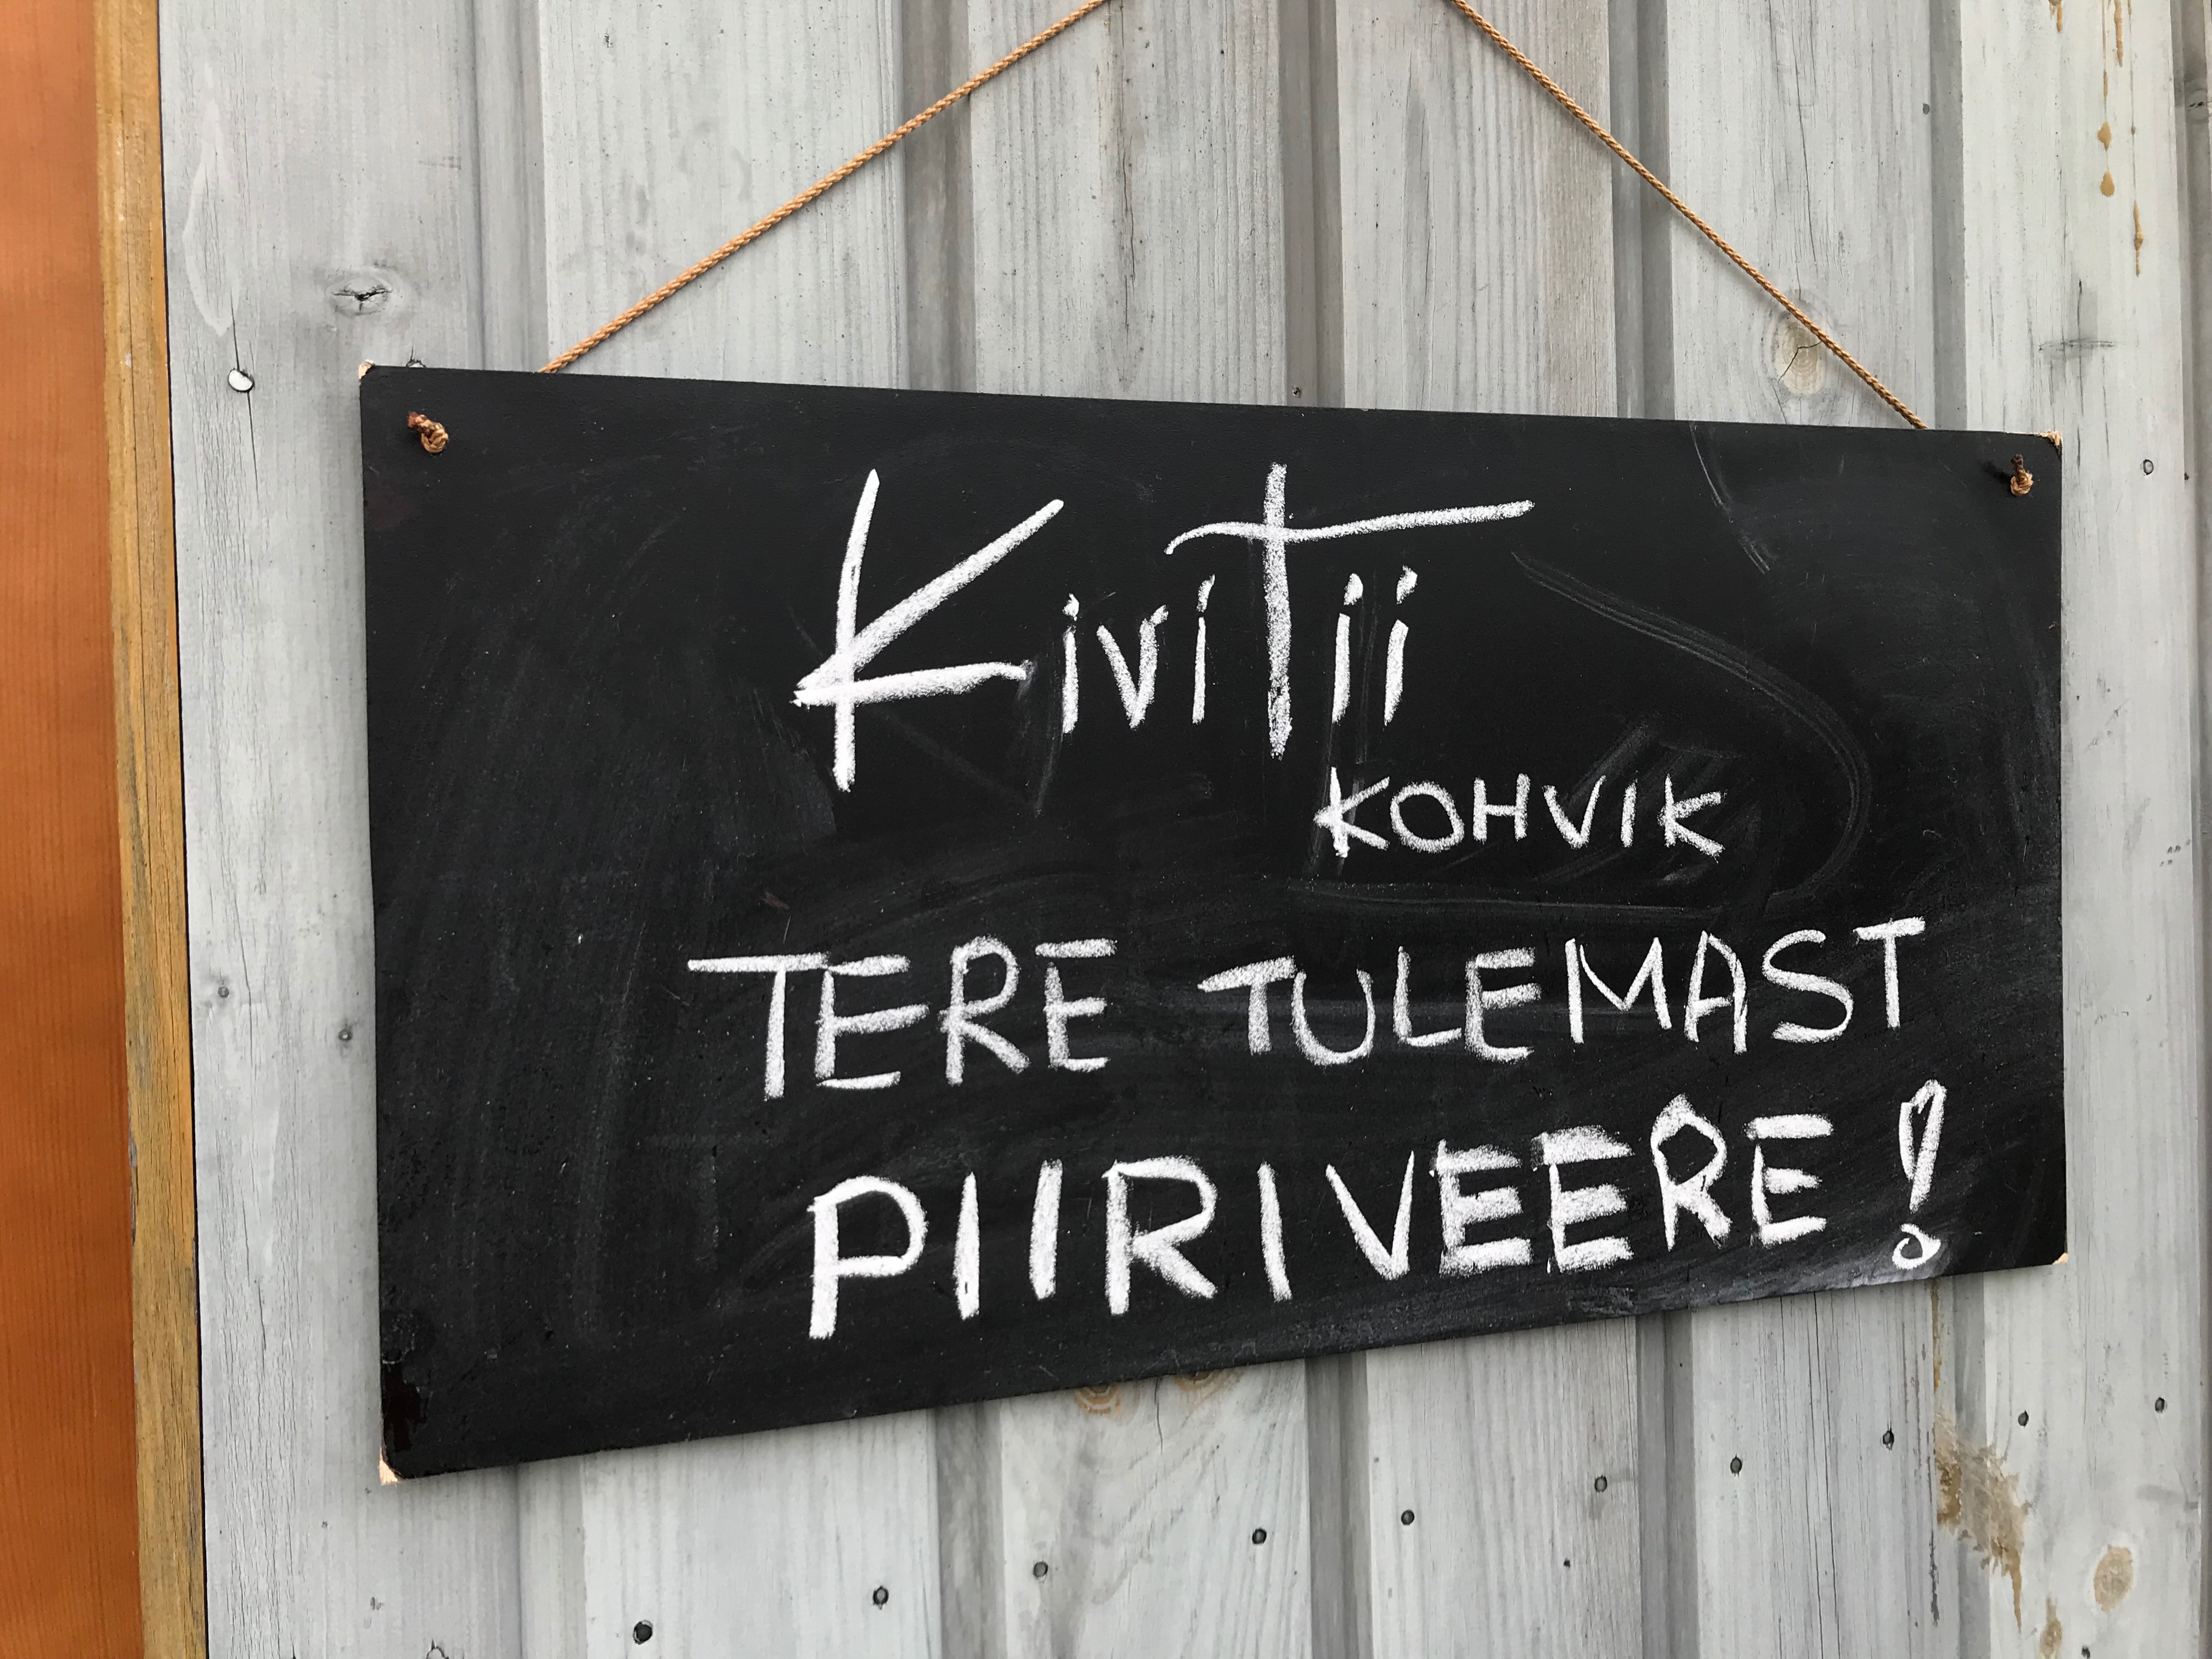 KiviTii
KOHVIK
TERE TULEMAST
PIIRIVEERE!